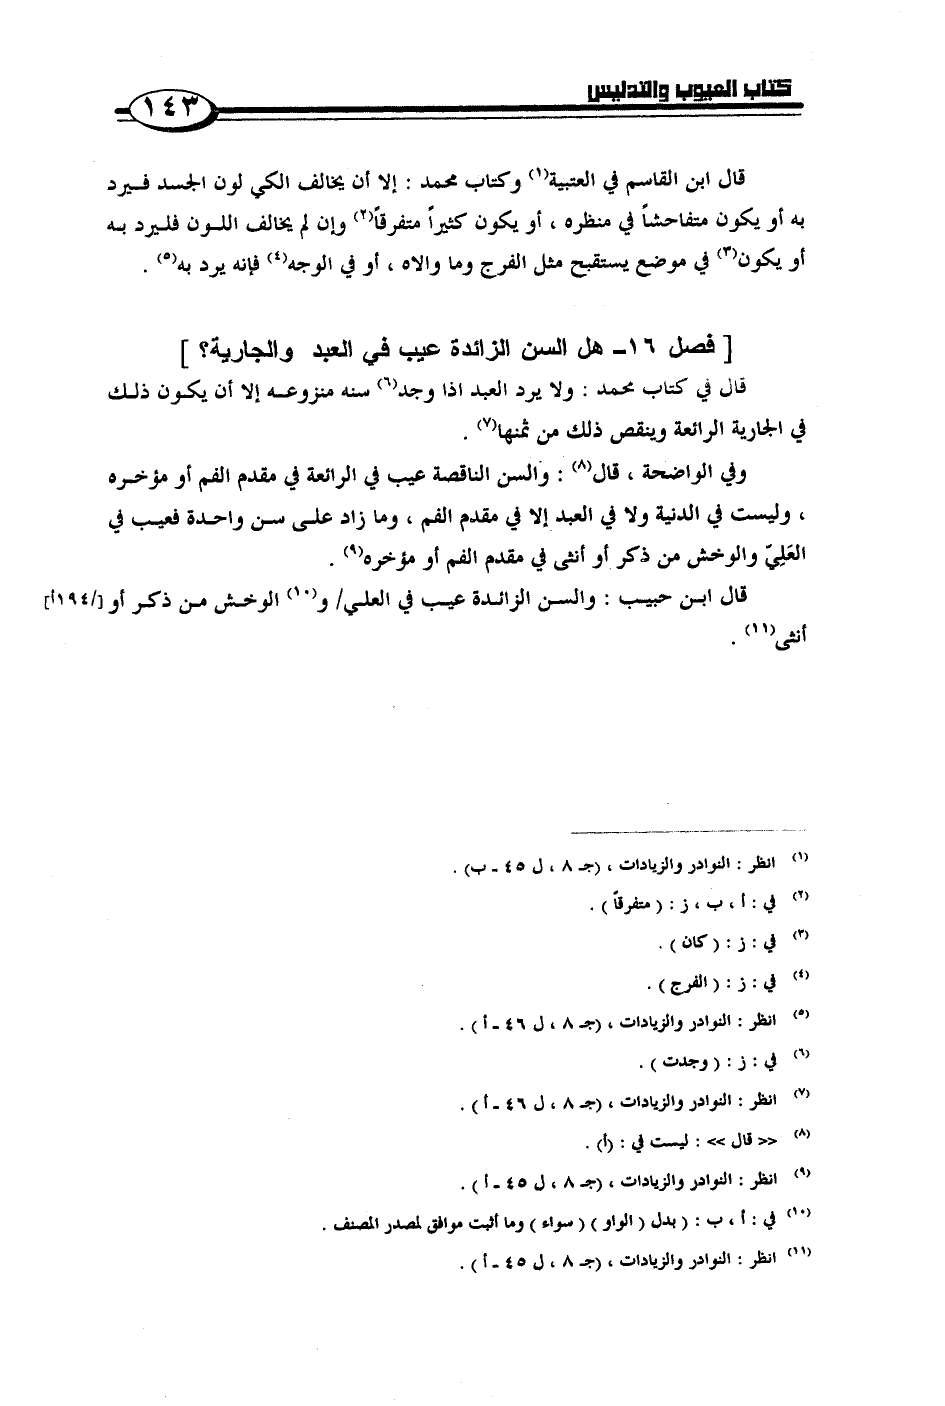 كتاب العيوب والتدليس
١٤٣
قال ابن القاسم في العتبية(١) وكتاب محمد : إلا أن يخالف الكي لون الجسد فـيرد
به أو يكون متفاحشاً في منظره ، أو يكون كثيراً متفرقاً(٢) وإن لم يخالف اللـون فلـيرد بـه
أو يكون(٣) في موضع يستقبح مثل الفرج وما والاه ، أو في الوجه(٤) فإنه يرد به(٥) .
[ فصل ١٦- هل السن الزائدة عيب في العبد والجارية؟ ]
قال في كتاب محمد : ولا يرد العبد اذا وجد(٦) سنه منزوعـه إلا أن يكـون ذلـك
في الجارية الرائعة وينقص ذلك من ثمنها(٧) .
وفي الواضحة ، قال(٨) : والسن الناقصة عيب في الرائعة في مقدم الفم أو مؤخـره
، وليست في الدنية ولا في العبد إلا في مقدم الفم ، وما زاد علـى سـن واحـدة فعيـب في
العَلِيّ والوخش من ذكر أو أنثى في مقدم الفم أو مؤخره(٩) .
قال ابـن حبيب : والسـن الزائـدة عيـب في العلي/ و(١٠) الوخـش مـن ذكـر أو [/١٩٤أ]
أنثى(١١) .
(١) انظر : النوادر والزيادات ، (جـ ٨ ، ل ٤٥ ـ ب) .
(٢) في : أ ، ب ، ز : ( متفرقاً ) .
(٣) في : ز : ( كان ) .
(٤) في : ز : ( الفرج ) .
(٥) انظر : النوادر والزيادات ، (جـ ٨ ، ل ٤٦ ـ أ ) .
(٦) في : ز : ( وجدت ) .
(٧) انظر : النوادر والزيادات ، (جـ ٨ ، ل ٤٦ ـ أ ) .
(٨) << قال >> : ليست في : (أ) .
(٩) انظر : النوادر والزيادات ، (جـ ٨ ، ل ٤٥ ـ أ ) .
(١٠) في : أ ، ب : ( بدل ( الواو ) ( سواء ) وما أثبت موافق لمصدر المصنف .
(١١) انظر : النوادر والزيادات ، (جـ ٨ ، ل ٤٥ ـ أ ) .